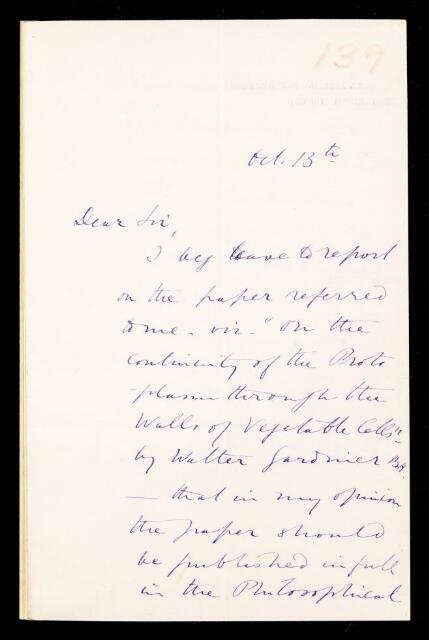 139
Oct. 13th
Dear Sir,
I beg leave to report
on the paper referred
to me - viz - "On the
continuity of the Proto
-plasm through the
Walls of Vegetable Cells" -
by Walter Gardiner B.A.
— that in my opinion
the paper should
be published in full
in the Philosophical